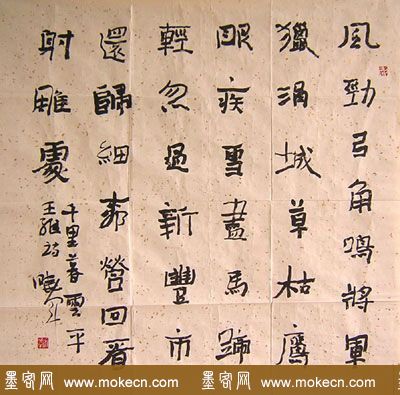 風勁弓角鳴將軍
獵渭城草枯鷹
眼疾雪盡馬蹄
輕忽過新豐市
還歸細柳營回看
射雕處
千里暮雲平
王維詩
墨客网 www.mokecn.com 墨客网 www.mokecn.com